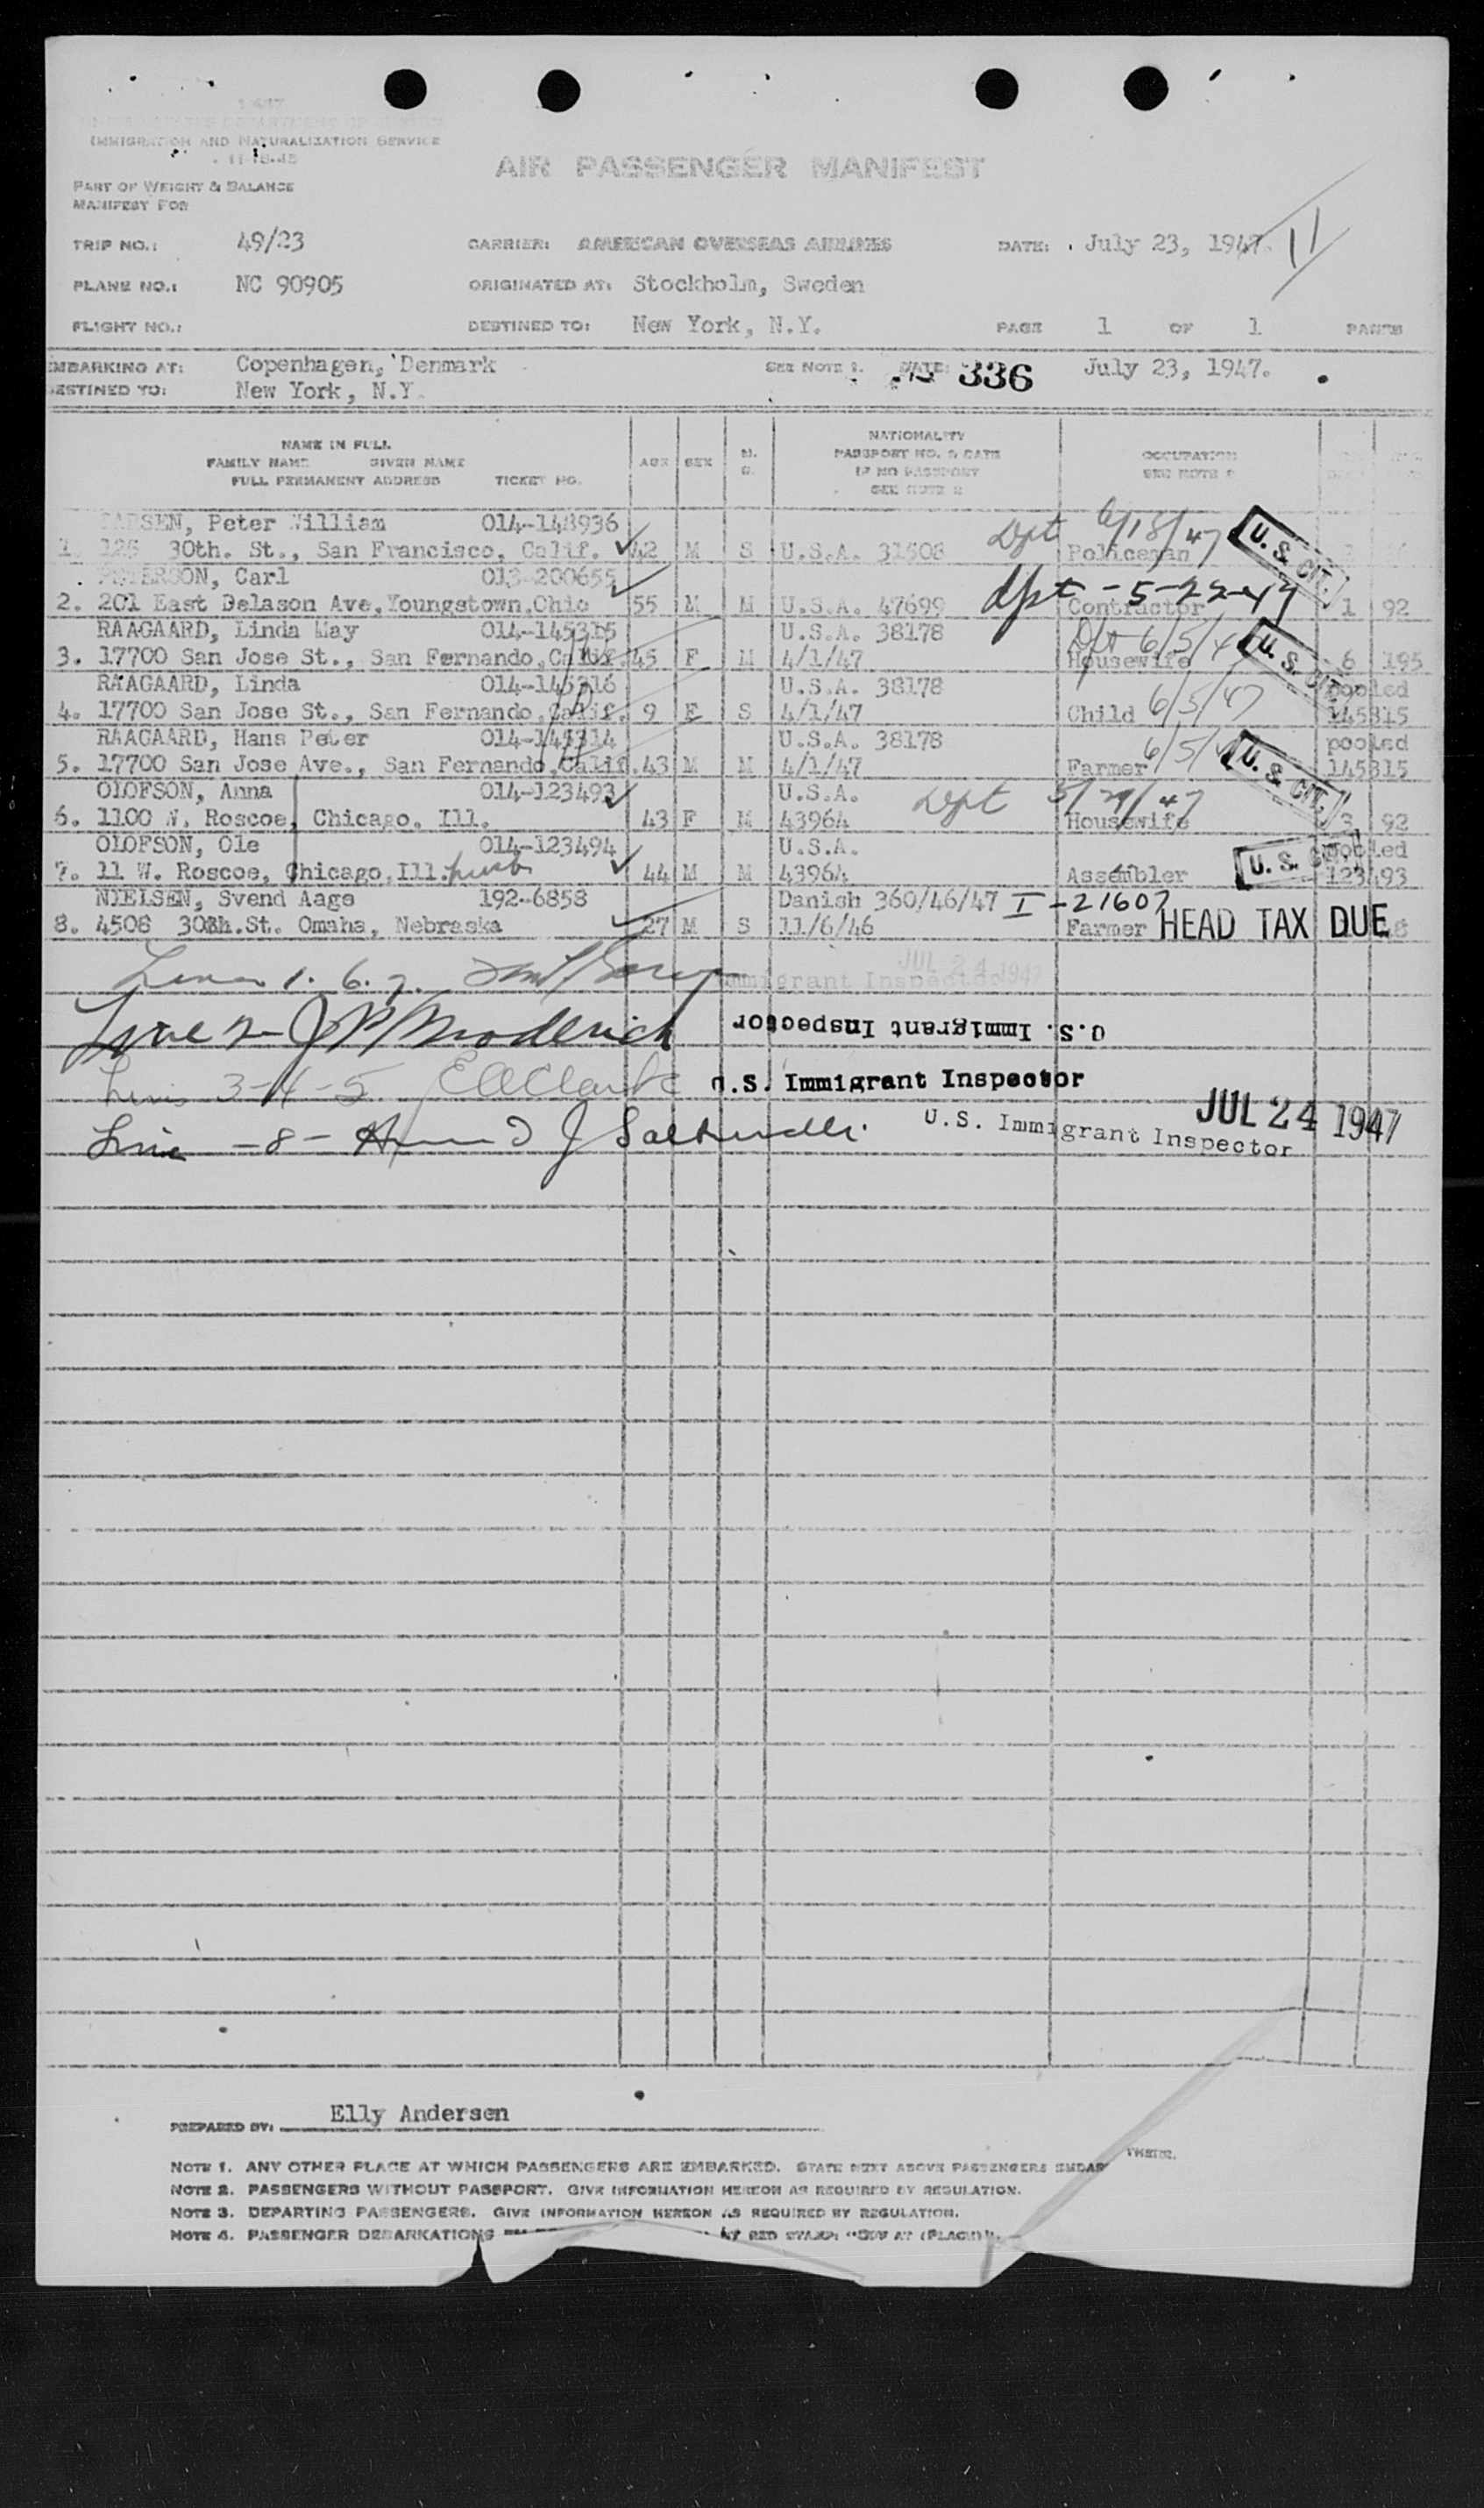 IMMIGRATION AND NATURALIZATION SERVICE
11-15-45
AIR PASSENGER MANIFEST
PART OF WEIGHT & BALANCE
MANIFEST FOR
11
TRIP NO.: 49/23 CARRIER: AMERICAN OVERSEAS AIRLINES DATE: July 23, 1947.
PLANE NO.: NC 90905 ORIGINATED AT: Stockholm, Sweden
FLIGHT NO.: DESTINED TO: New York, N.Y. PAGE 1 OF 1 PAGES
EMBARKING AT: Copenhagen, Denmark SEE NOTE 1. DATE: 336 July 23, 1947.
DESTINED TO: New York, N.Y.
NAME IN FULL
FAMILY NAME GIVEN NAME
FULL PERMANENT ADDRESS TICKET NO.
AGE SEX M. S.
NATIONALITY
PASSPORT NO. & DATE
IF NO PASSPORT
SEE NOTE 2
OCCUPATION
SEE NOTE
Peter William 014-148936 Dept 6/18/47 U.S. CIT.
1. 125 30th. St., San Francisco, Calif. 42 M S U.S.A. 31508 Policeman
PETERSON, Carl 013-200655 dpt -5-22-47
2. 201 East Delason Ave, Youngstown, Ohio 55 M M U.S.A. 47699 Contractor 1 92
RAAGAARD, Linda May 014-145315 U.S.A. 38178 Dpt 6/5/47 U.S. CIT.
3. 17700 San Jose St., San Fernando, Calif. 45 F M 4/1/47 Housewife 6 195
RAAGAARD, Linda 014-145316 U.S.A. 38178 pooled
4. 17700 San Jose St., San Fernando, Calif. 9 F S 4/1/47 Child 6/5/47 145315
RAAGAARD, Hans Peter 014-145314 U.S.A. 38178 6/5/47 U.S. CIT. pooled
5. 17700 San Jose Ave., San Fernando, Calif. 43 M M 4/1/47 Farmer 145315
OLOFSON, Anna 014-123493 U.S.A. Dept 5/29/47
6. 1100 W. Roscoe, Chicago, Ill. 43 F M 43964 Housewife 3 92
OLOFSON, Ole 014-123494 U.S.A. U.S. CIT. pooled
7. 11 W. Roscoe, Chicago, Ill. 44 M M 43964 Assembler 123493
NIELSEN, Svend Aage 192-6858 Danish 360/46/47 I-21607
8. 4508 30th. St. Omaha, Nebraska 27 M S 11/6/46 Farmer HEAD TAX DUE
Lines 1. 6. 7. Immigrant Inspector JUL 24 1947
Line 2 U.S. Immigrant Inspector
Lines 3-4-5 U.S. Immigrant Inspector
Line -8- U.S. Immigrant Inspector JUL 24 1947
PREPARED BY: Elly Andersen
NOTE 1. ANY OTHER PLACE AT WHICH PASSENGERS ARE EMBARKED. STATE NEXT ABOVE PASSENGERS EMBAR THERE.
NOTE 2. PASSENGERS WITHOUT PASSPORT. GIVE INFORMATION HEREON AS REQUIRED BY REGULATION.
NOTE 3. DEPARTING PASSENGERS. GIVE INFORMATION HEREON AS REQUIRED BY REGULATION.
NOTE 4. PASSENGER DEBARKATIONS BY RED STAMP: "OFF AT (PLACE)".